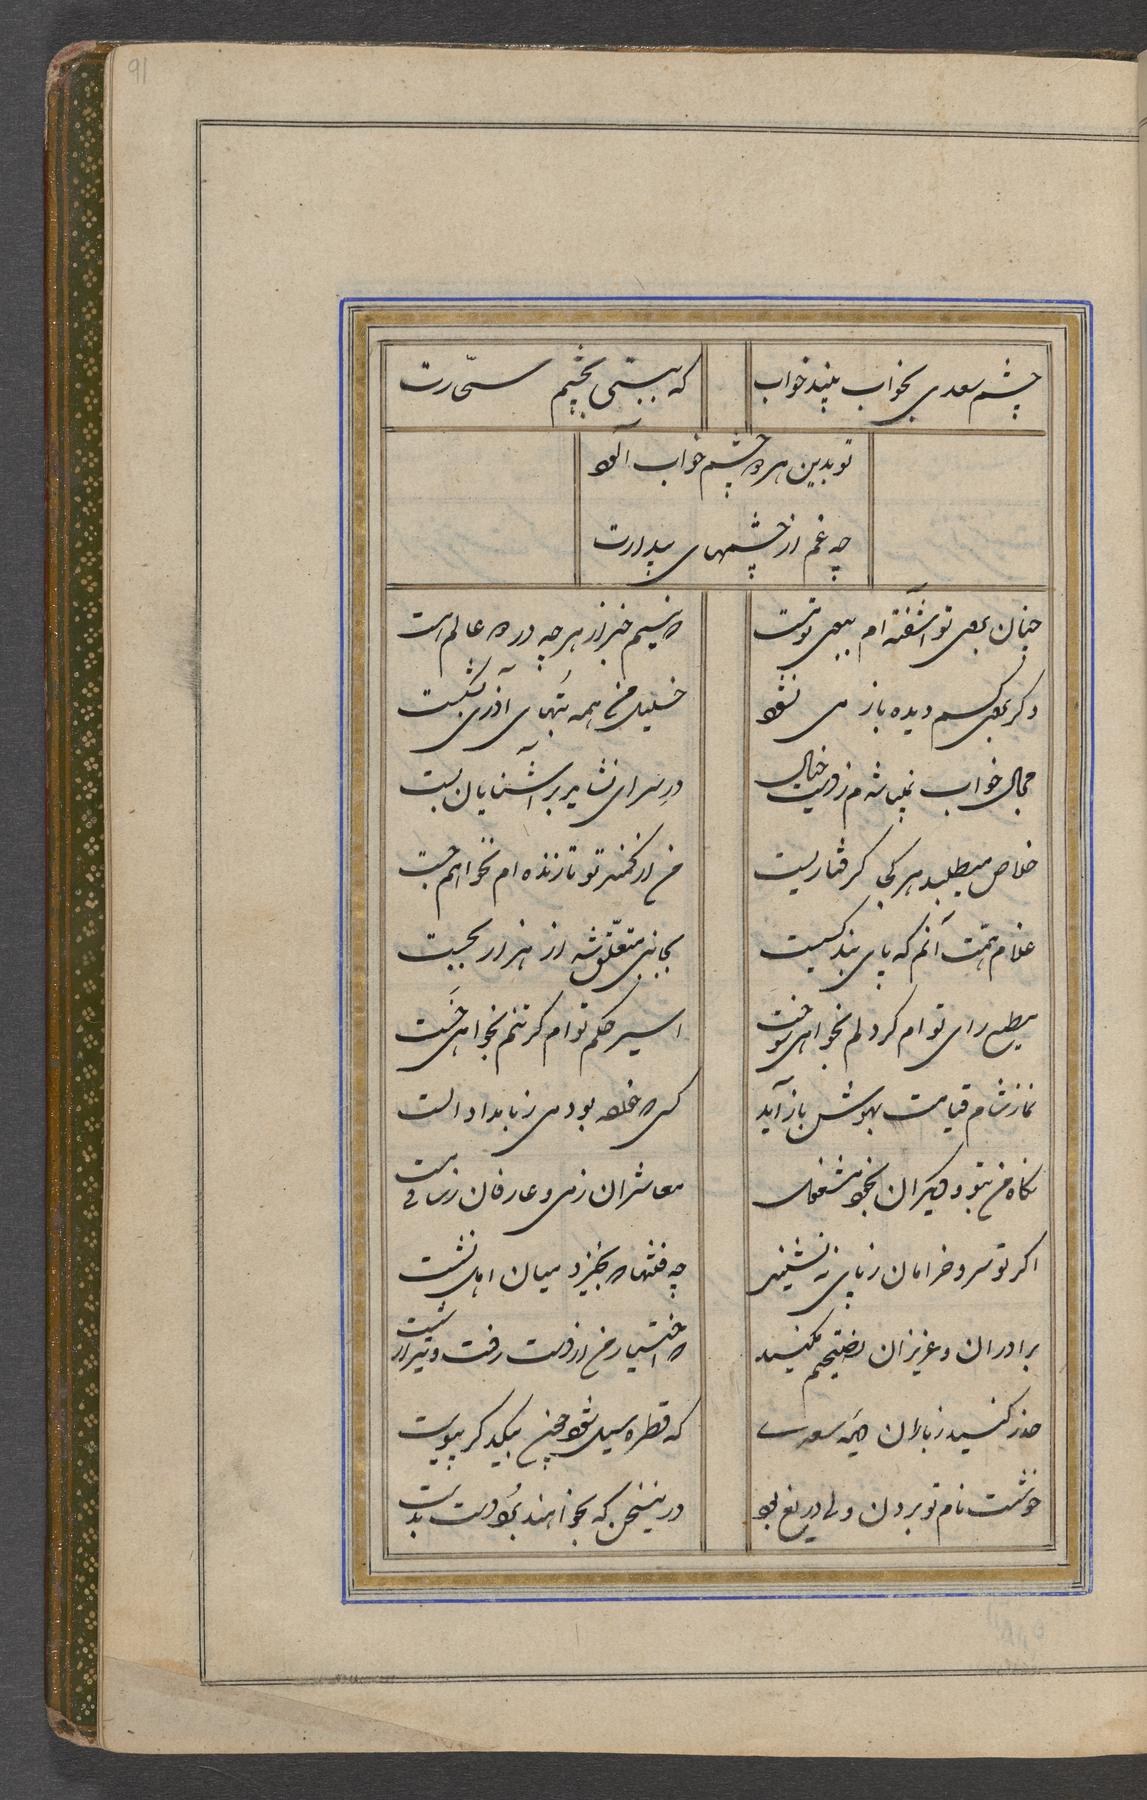 91
چشم سعدی بخواب بیند خواب
که ببستی بچشم سحّارت
تو بدین هر دو چشم خواب آلود
چه غم از چشمهای بیدارت
چنان بموی تو آشفته ام ببوی تو مست
که نیستم خبر از هر چه در دو عالم هست
دکر بروی کسم دیده باز می نشود
خلیل من همه بتهای آذری بشکست
مجال خواب نمیباشدم ز دست خیال
در سرای نشاید بر آشنایان بست
خلاص میطلبد هر کجا کرفتاریست
من از کمند تو تا زنده ام نخواهم جست
غلام همّت آنم که پای بند کسیست
بجانبی متعلّق شد از هزار بجست
مطیع رای توام کر دلم بخواهی سوخت
اسیر حکم توام کر تنم بخواهی خَست
نماز شام قیامت بهوش باز آید
کسی که خورده بود می ز بامداد الست
نکاه من بتو و دیکران بخود مشغول
معاشران ز می و عارفان ز ساقی مست
اکر تو سرو خرامان ز پای ننشینی
چه فتنها که بخیزد میان اهل نشست
برادران و عزیزان نصیحتم مکنید
که اختیار من از دست رفت و تیر از شست
حذر کنید ز باران دیده سعدی
که قطره سیل شود چون بیکدکر پیوست
خوشست نام تو بردن ولی دریغ بود
درین سخن که بخواهند بُرد دست بدست